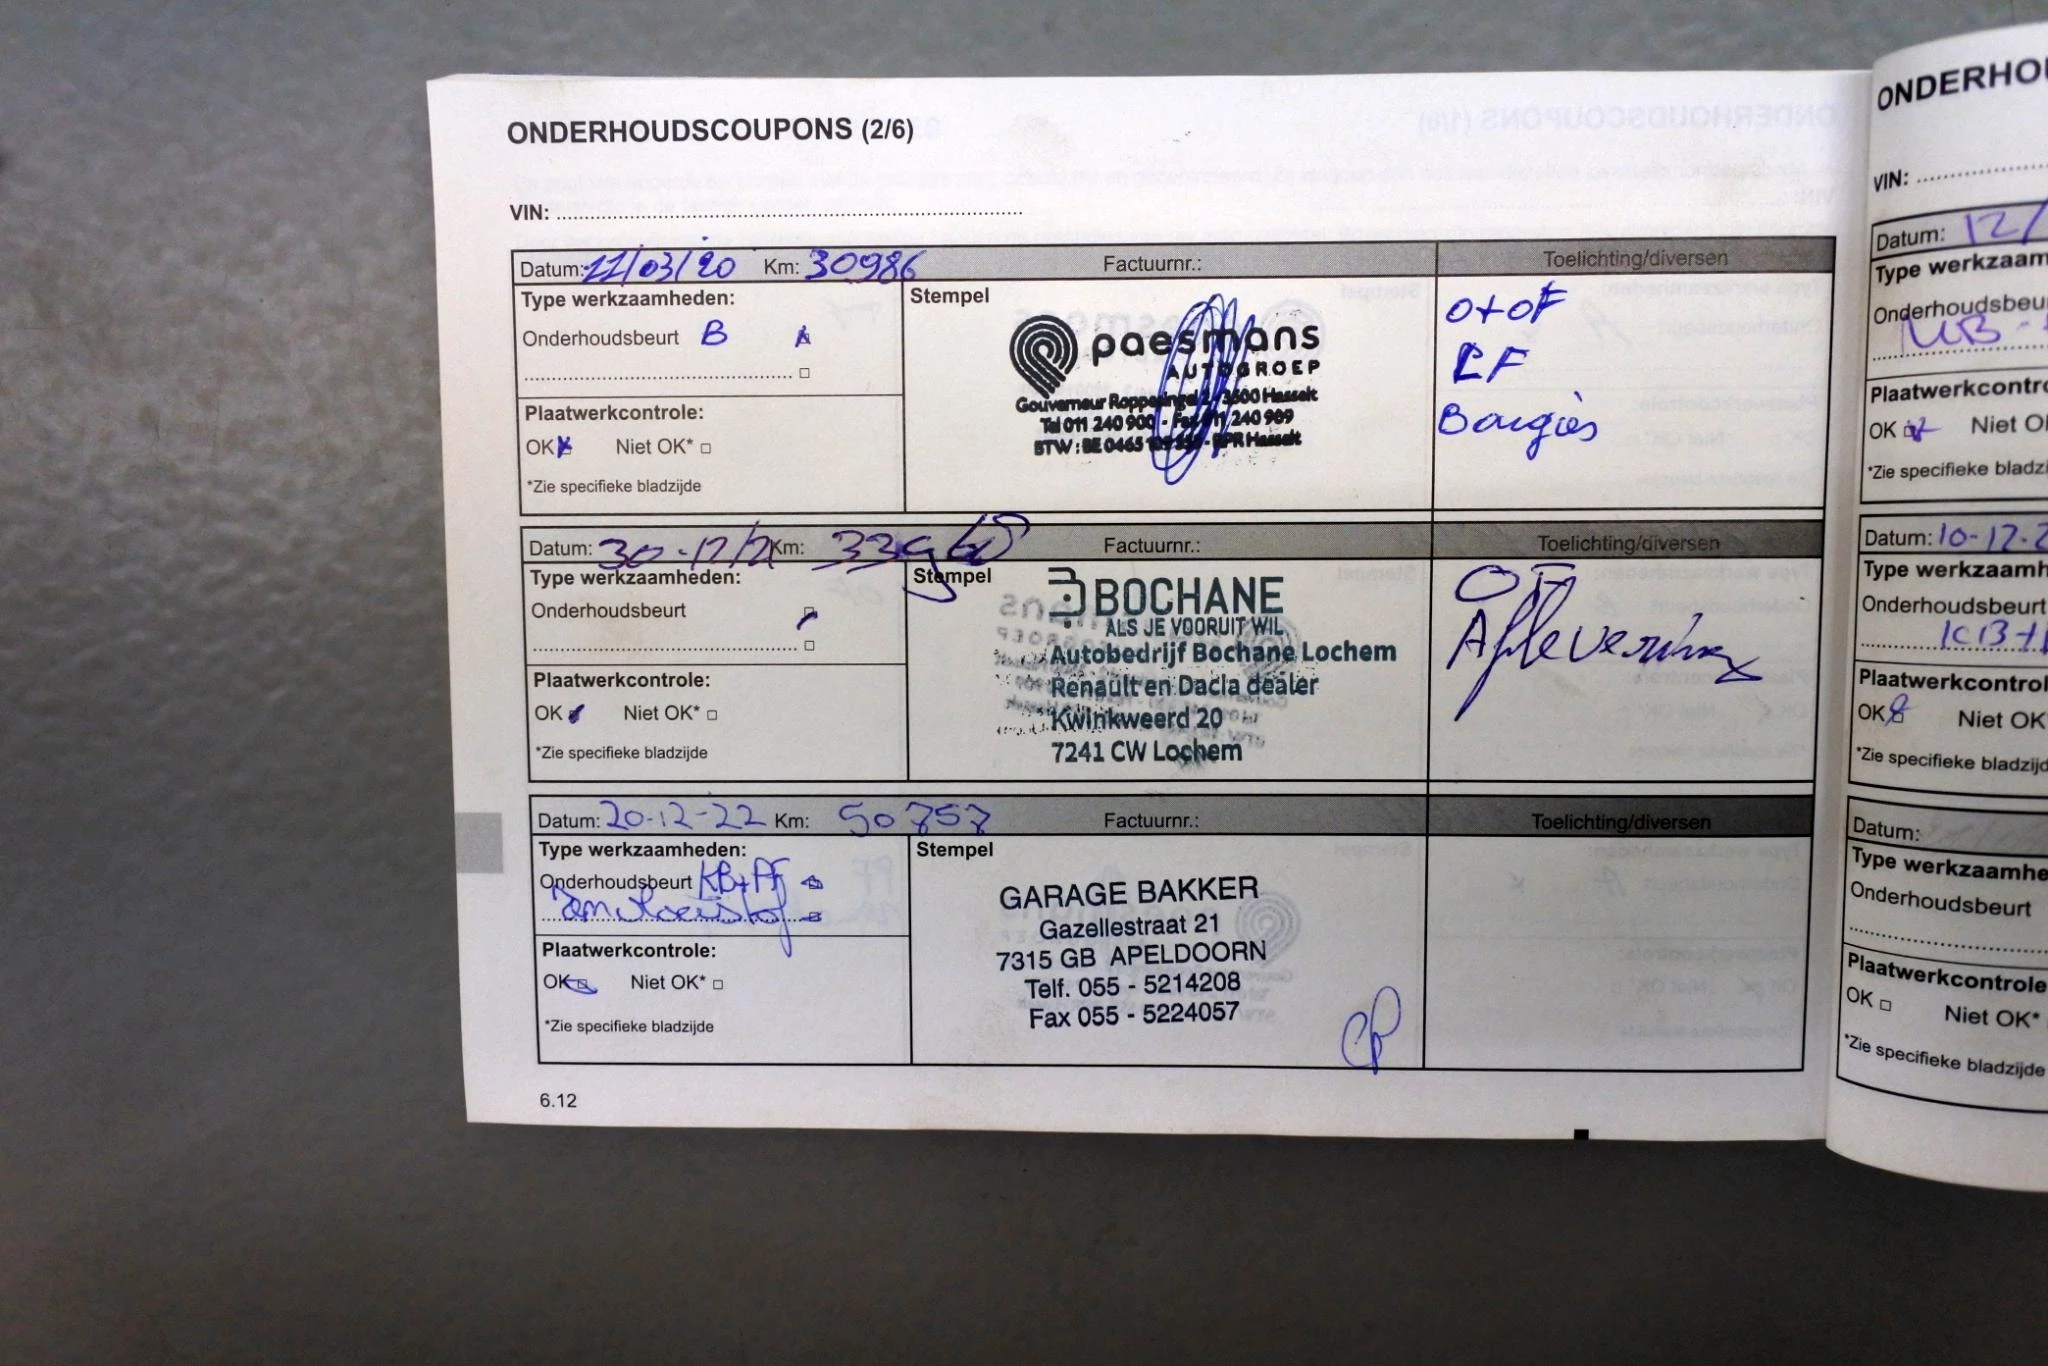 ONDERHOUDSCOUPONS (2/6)
VIN:
Datum: 11/03/20 Km: 30986 Factuurnr.: Toelichting/diversen
Type werkzaamheden:
Onderhoudsbeurt B
Stempel
paesmans
AUTOGROEP
Gouverneur Roppesingel 2 - 3500 Hasselt
Tel 011 240 900 - Fax 011 240 909
BTW : BE 0465 - RPR Hasselt
O+OF
LF
Bougies
Plaatwerkcontrole:
OK Niet OK*
*Zie specifieke bladzijde
Datum: 30-12/21 Km: Factuurnr.: Toelichting/diversen
Type werkzaamheden:
Onderhoudsbeurt
Stempel
BOCHANE
ALS JE VOORUIT WIL
Autobedrijf Bochane Lochem
Renault en Dacia dealer
Kwinkweerd 20
7241 CW Lochem
OF
Aflevering
Plaatwerkcontrole:
OK Niet OK*
*Zie specifieke bladzijde
Datum: 20-12-22 Km: 50757 Factuurnr.: Toelichting/diversen
Type werkzaamheden:
Onderhoudsbeurt KB+PF
Remvloeistof
Stempel
GARAGE BAKKER
Gazellestraat 21
7315 GB APELDOORN
Telf. 055 - 5214208
Fax 055 - 5224057
Plaatwerkcontrole:
OK Niet OK*
*Zie specifieke bladzijde
6.12
ONDERHOU
VIN:
Datum: 12/
Type werkzaam
Onderhoudsbeu
Plaatwerkcontro
OK Niet O
*Zie specifieke bladzi
Datum: 10-12-2
Type werkzaamh
Onderhoudsbeurt
KB+
Plaatwerkcontrol
OK Niet OK*
*Zie specifieke bladzijd
Datum:
Type werkzaamhe
Onderhoudsbeurt
Plaatwerkcontrole
OK Niet OK*
*Zie specifieke bladzijde